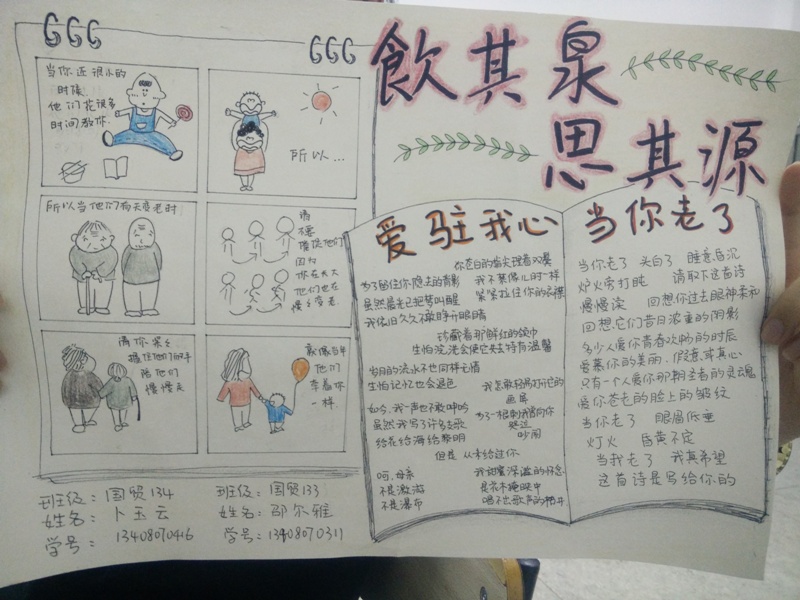 飲其泉
思其源
当你还很小的
时候
他们花很多
时间教你
所以...
所以当他们有天变老时
请
不要
催促他们
因为
你在长大
他们也在
慢慢变老
请你紧紧
握住他们的手
陪他们
慢慢走
就像当年
他们
牵着你
一样
班级：国贸134
姓名：卜玉云
学号：13408070416
班级：国贸133
姓名：邵尔雅
学号：13408070311
爱驻我心
你苍白的指尖理着双鬓
为了留住你隐去的背影
我不禁像儿时一样
虽然晨光已把梦叫醒
紧紧拉住你的衣襟
我依旧久久不敢睁开眼睛
珍藏着那鲜红的领巾
生怕浣洗会使它失去特有温馨
岁月的流水不也同样无情
生怕记忆也会退色
我怎敢轻易打开它的
画屏
如今，我一声也不敢呻吟
虽然我写了许多支歌
给花给海给黎明
但是 从未给过你
呵，母亲
不是激游
不是瀑布
是花木掩映中
唱不出歌声的枯井
当你老了
当你老了 头白了 睡意昏沉
炉火旁打盹 请取下这首诗
慢慢读 回想你过去眼神柔和
回想它们昔日浓重的阴影
多少人爱你青春欢畅的时辰
爱慕你的美丽、假意或真心
只有一个人爱你那朝圣者的灵魂
爱你苍老的脸上的皱纹
当你老了 眼眉低垂
灯火 昏黄不定
当我老了 我真希望
这首诗是写给你的